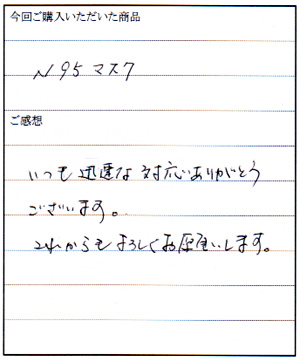 今回ご購入いただいた商品
N95マスク
ご感想
いつも迅速な対応ありがとう
ございます。
これからもよろしくお願いします。